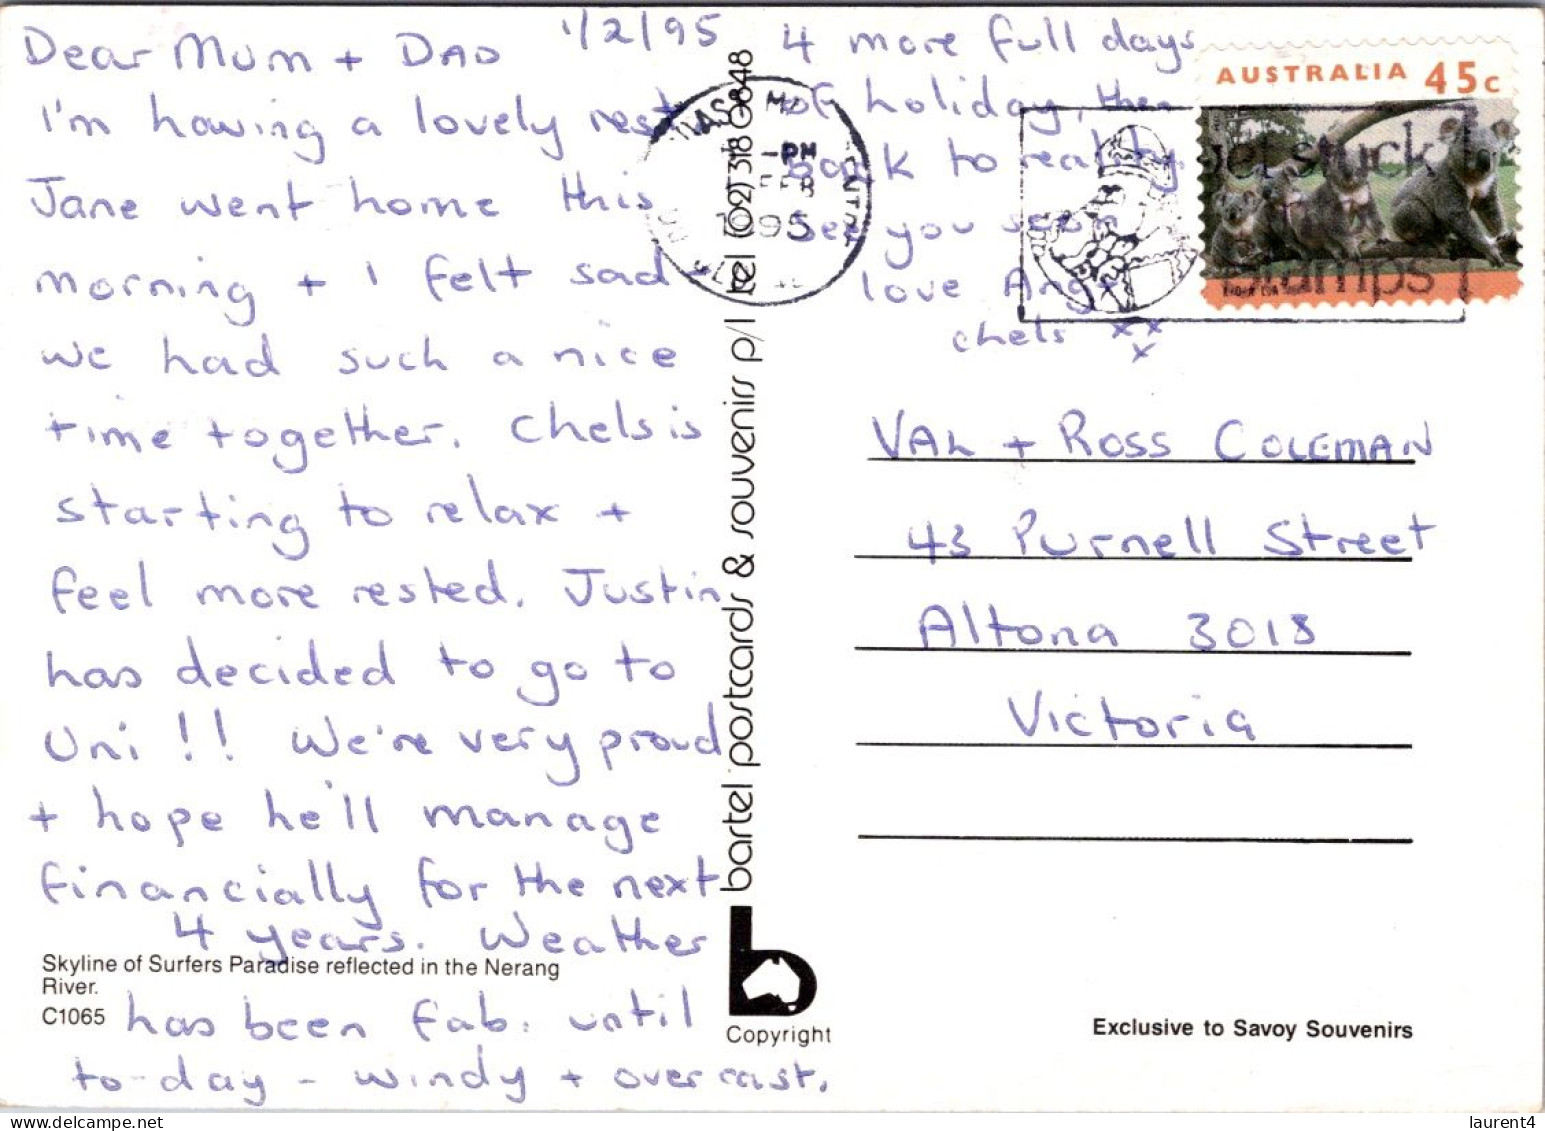 1/2/95
Dear Mum + DAD
I'm having a lovely rest
Jane went home this
morning + I felt sad
we had such a nice
time together. Chels is
starting to relax +
feel more rested. Justin
has decided to go to
Uni !! We're very proud
+ hope he'll manage
financially for the next
4 years. Weather
has been fab. until
to-day - windy + overcast.
4 more full days
of holiday, then
back to reality
see you soon
love Ang +
chels xx
x
Skyline of Surfers Paradise reflected in the Nerang
River.
C1065
bartel postcards & souvenirs p/l tel (02) 318 0848
Copyright
AUSTRALIA 45c
PM
FEB
1995
get stuck
stamps
VAL + ROSS COLEMAN
43 Purnell Street
Altona 3018
Victoria
Exclusive to Savoy Souvenirs
laurent4